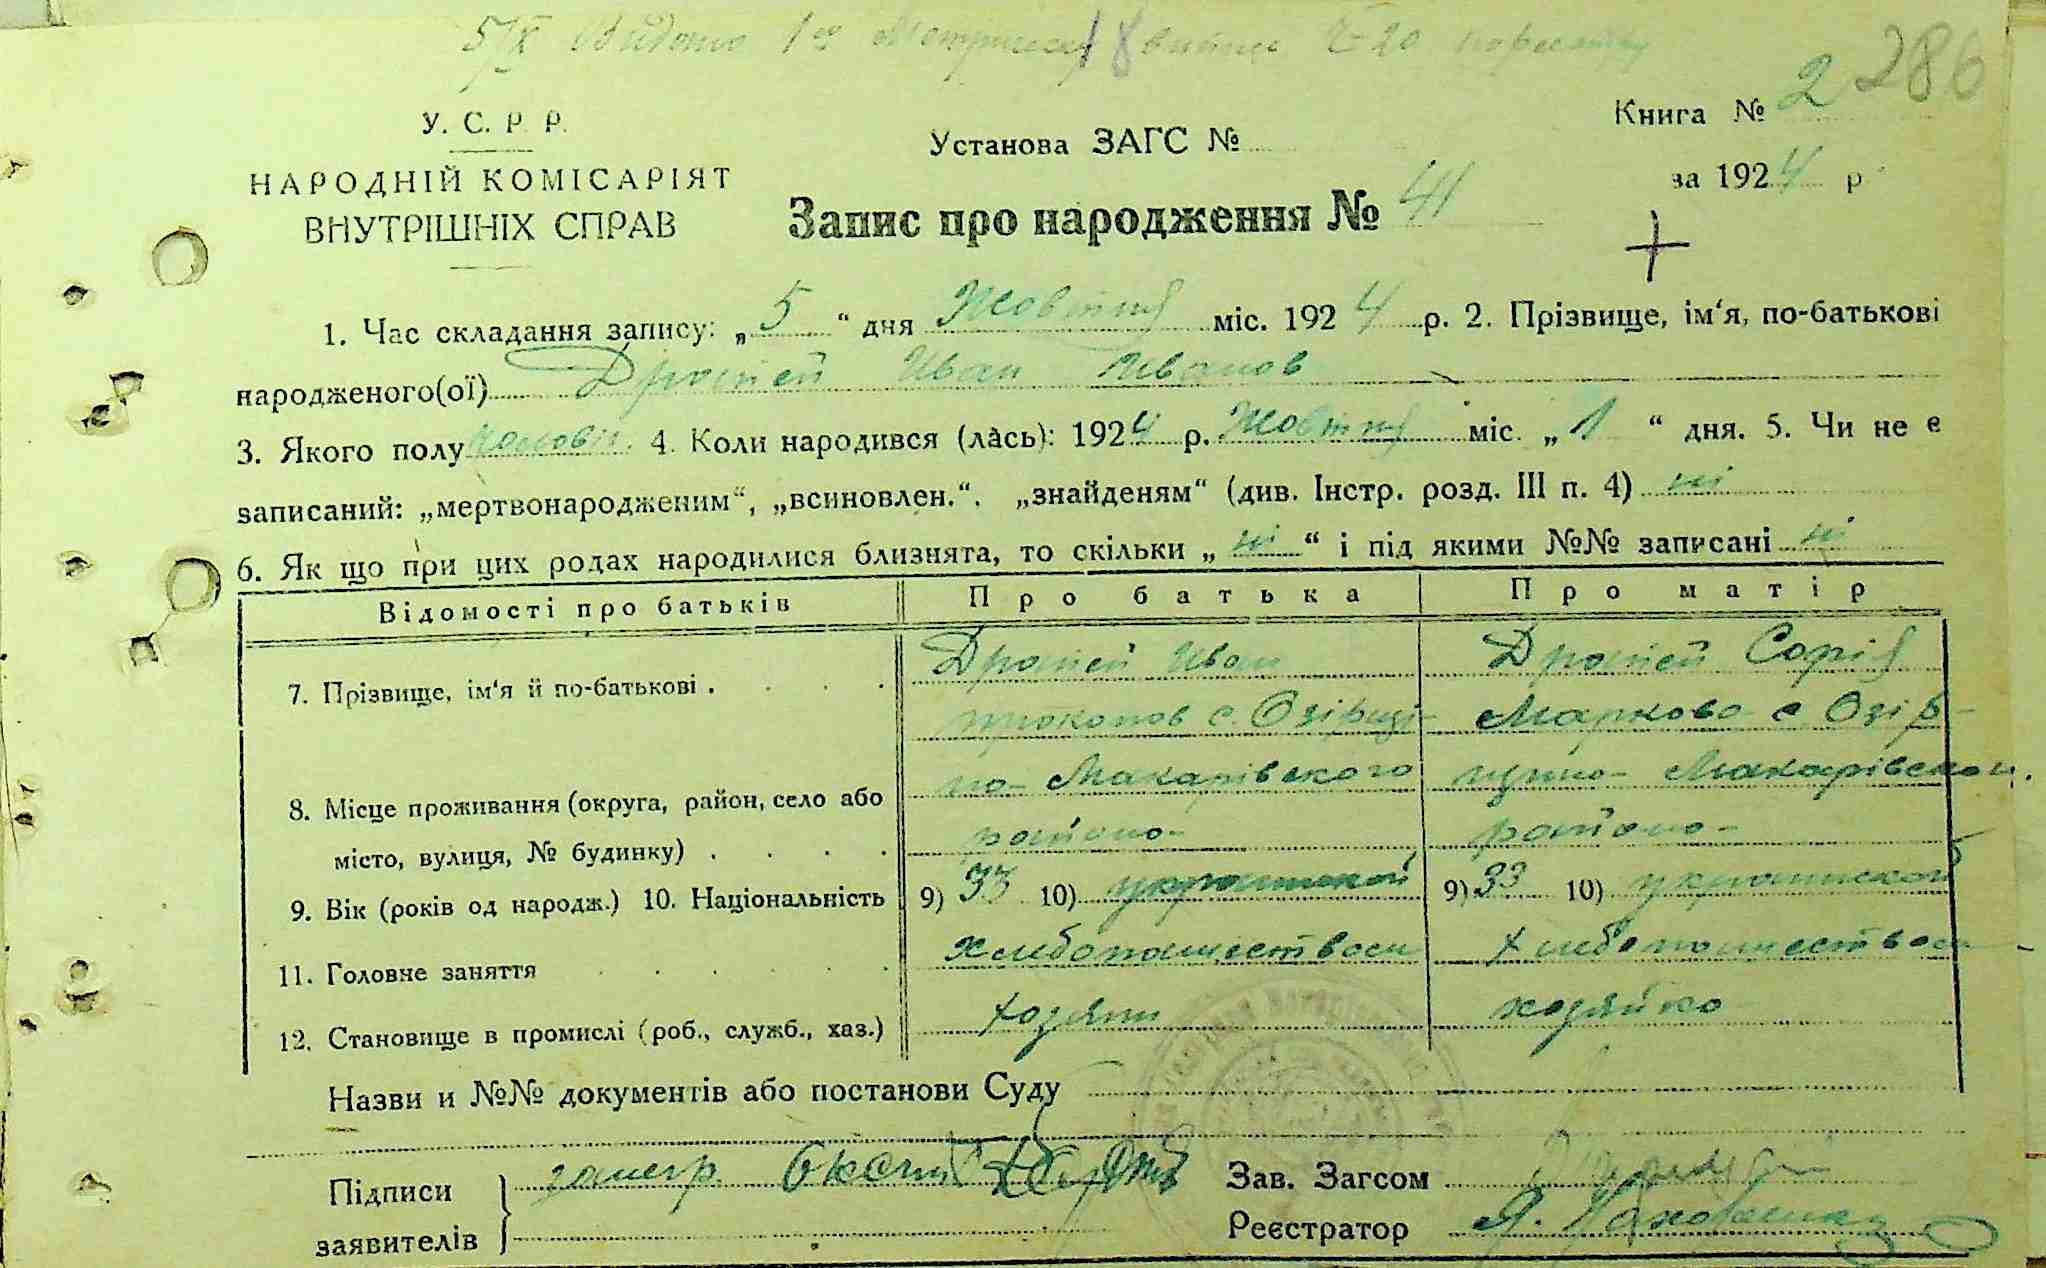 5/X Видано 1у Метричну виписк № 20 по реєстру
286
У. С. Р. Р.
НАРОДНІЙ КОМІСАРІЯТ
ВНУТРІШНІХ СПРАВ
Установа ЗАГС №
Книга № 2
за 1924 р
Запис про народження № 41
1. Час складання запису: „ 5 “ дня Жовтня міс. 1924 р. 2. Прізвище, ім‘я, по-батькові
народженого(ої) Драпей Иван Иванов
3. Якого полу 4. Коли народився (лась): 1924 р. Жовтня міс. „ 1 “ дня. 5. Чи не є
записаний: „мертвонародженим“, „всиновлен.“. „знайденям“ (див. Інстр. розд. III п. 4) ні
6. Як що при цих родах народилися близнята, то скільки „ ні “ і під якими №№ записані ні
Відомості про батьків Про батька Про матір
7. Прізвище, ім‘я й по-батькові . Драпей Иван Драпей Софія
прокопов с. Маркова с
8. Місце проживання (округа, район, село або Макарівского Макарівског.
місто, вулиця, № будинку) . району району
9. Вік (років од народж.) 10. Національність 9) 10) украинской 9) 33 10) украинской
11. Головне заняття хлебопашеством хлебопашеством
12. Становище в промислі (роб., служб., хаз.) хозяин хозяйка
Назви и №№ документів або постанови Суду
Підписи
заявителів
Зав. Загсом
Реєстратор Я.